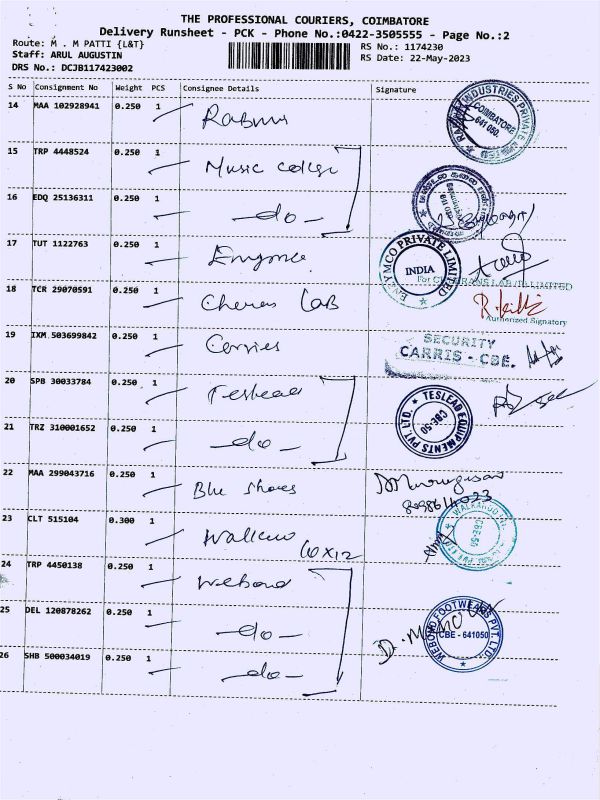 THE PROFESSIONAL COURIERS, COIMBATORE
Delivery Runsheet - PCK - Phone No.:0422-3505555 - Page No.:2
Route: M . M PATTI {L&T}
RS No.: 1174230
Staff: ARUL AUGUSTIN
RS Date: 22-May-2023
DRS No.: DCJB117423002
S No Consignment No Weight PCS Consignee Details Signature
14 MAA 102928941 0.250 1
INDUSTRIES PRIVATE
COIMBATORE
641 050.
15 TRP 4448524 0.250 1 Music college
16 EDQ 25136311 0.250 1 -do-
17 TUT 1122763 0.250 1
PRIVATE LIMITED
INDIA
18 TCR 29070591 0.250 1 Cheran LAB
Authorized Signatory
19 IXM 503699842 0.250 1 Carries
SECURITY
CARRIS - CBE.
20 SPB 30033784 0.250 1 Teslead
TESLEAD EQUIPMENTS PVT. LTD.
CBE-50
21 TRZ 310001652 0.250 1 -do-
22 MAA 299043716 0.250 1 Blue shores
23 CLT 515104 0.300 1
10X12
CBE-50
24 TRP 4450138 0.250 1 Webond
25 DEL 120878262 0.250 1 -do-
WEBOND FOOTWEARS PVT. LTD.
CBE - 641050
26 SHB 500034019 0.250 1 -do-